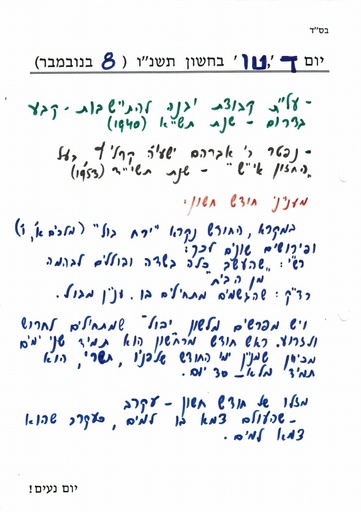 בס״ד
יום ד׳, טו׳ בחשון תשנ״ו (8 בנובמבר)
- עלית קבוצת יבנה להתישבות - קבע
בדרום - שנת תש״א (1940)
- נפטר ר׳ אברהם ישעיה קרליץ בעל
"החזון אי״ש" - שנת תשי״ד (1953)
מענייני חודש חשון:
במקרא, החודש נקרא "ירח בול" (מלכים א׳, ו)
ופירושים שונים לכך:
רש״י: "שהעשב כלה בשדה ובוללים לבהמה
מן הבית"
רד״ק: שהגשמים מתחילים בו. ענין מבול.
ויש מפרשים מלשון "יבול" שמתחילים לחרוש
ולזרוע. ראש חודש מרחשון הוא תמיד שני ימים
מכיוון שמנין ימי החודש שלפניו, תשרי, הוא
תמיד מלא - 30 יום.
מזלו של חודש חשון - עקרב
- שהעולם צמא בו למים, כעקרב שהוא
צמא למים.
יום נעים!